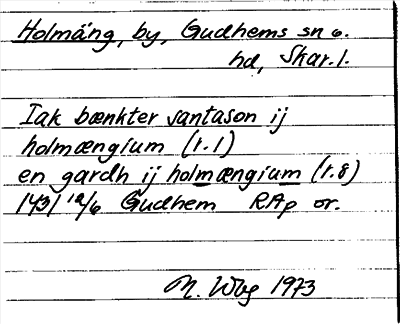 Holmäng, by, Gudhems sn o.
hd, Skar. l.
Iak bænkter santason ij
holmængium (r. 1)
en gardh ij holmængium (r. 8)
1431 12/6 Gudhem RAp or.
N. Wbg 1973